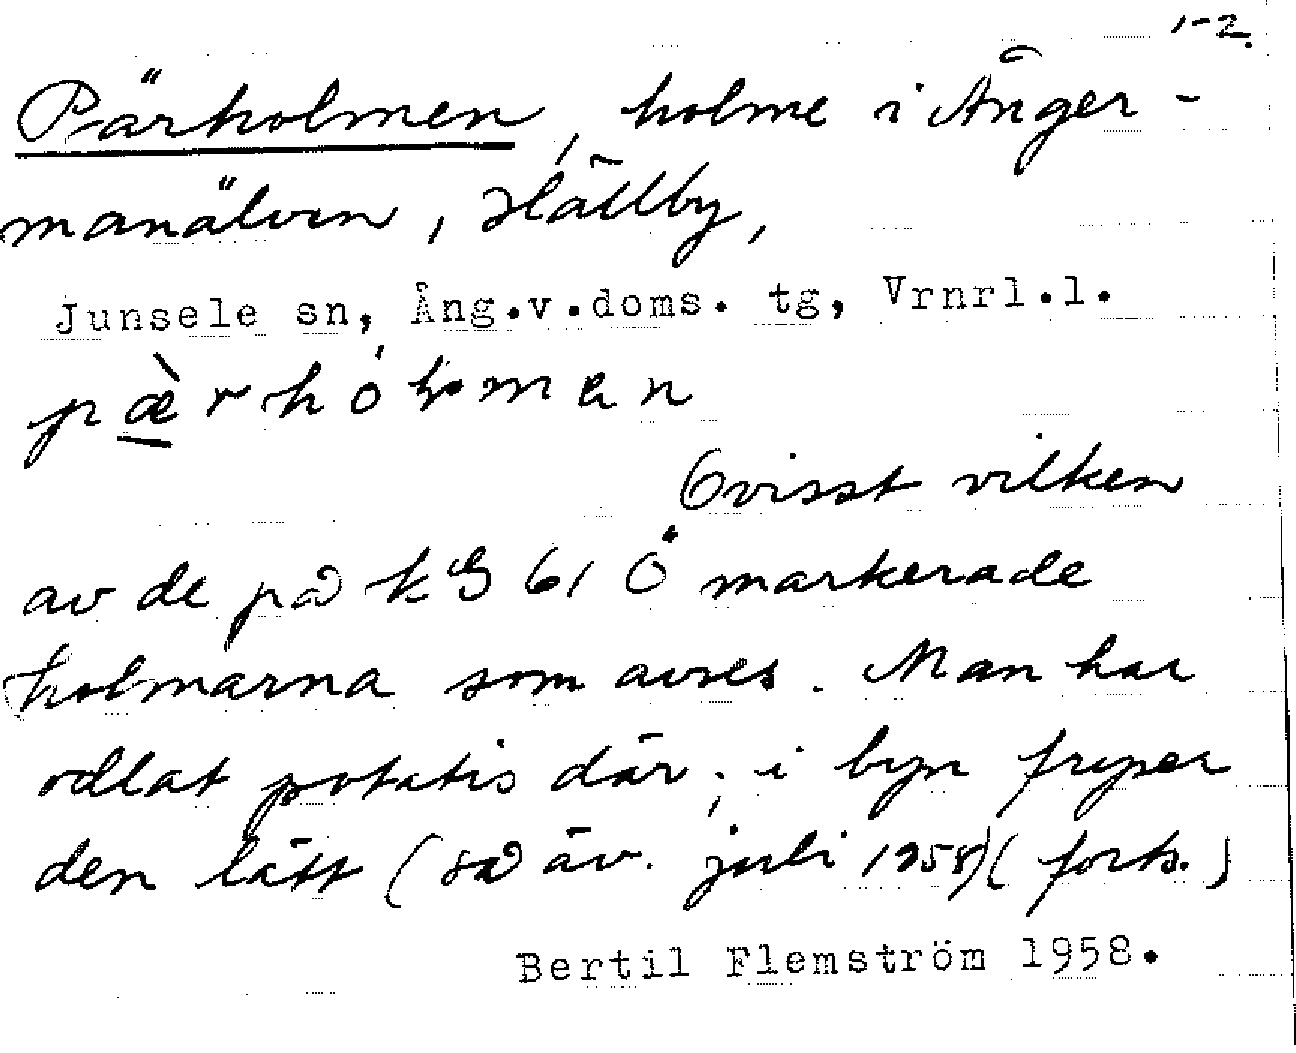 1-2.
Pärholmen, holme i Ånger-
manälven, Hällby,
Junsele sn, Ång.v.doms. tg, Vrnrl.l.
pæ̀rhóḷmen
Ovisst vilken
av de på kbl 61 Ö markerade
holmarna som avses. Man har
odlat potatis där; i byn fryser
den lätt (så äv. juli 1958) (forts.)
Bertil Flemström 1958.